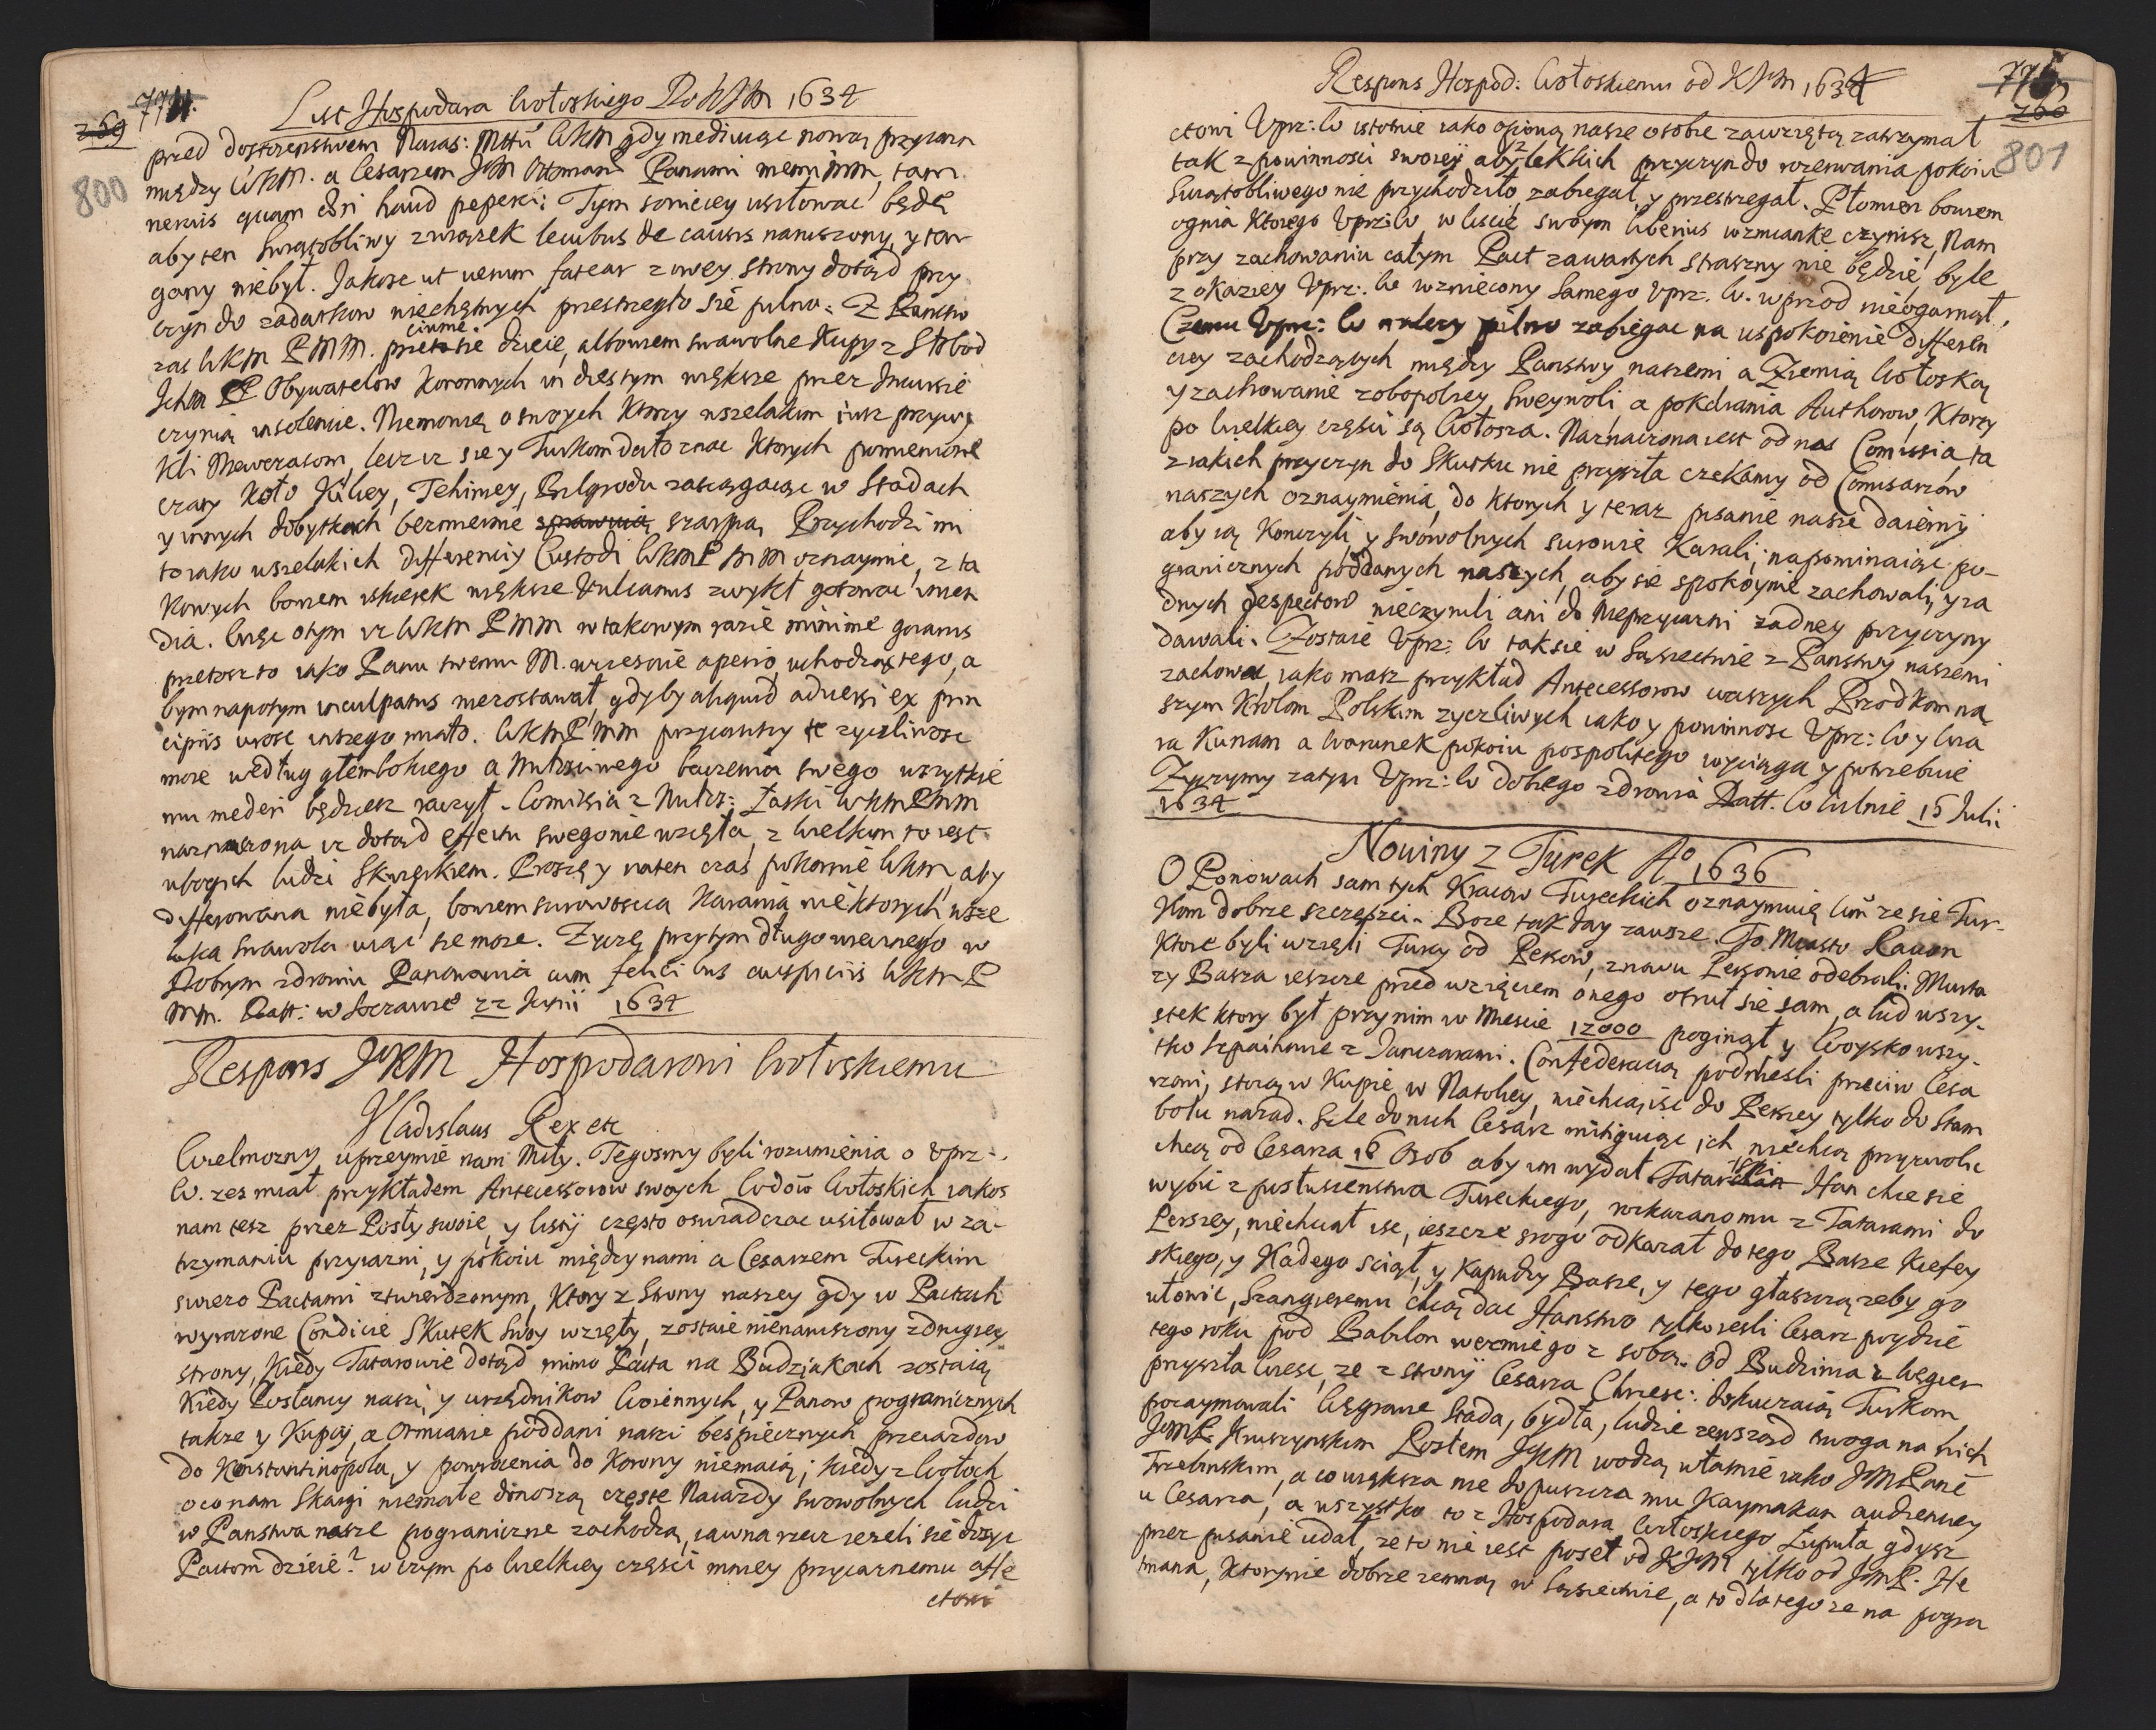 774.
259
800
List Hospodara Wołoskiego Do KJM 1634
przed dostąpieństwem Naias: Mttu WKM gdy mediuiąc nową przyiazn
między WKM. a Cesarzem JM Ottomani Panami memi mm, tam
neruis quam chri haud peperci: Tym sowiciey usiłować będę
aby ten Swiątobliwy związek leuibus de causis naruszony, y tar
gany niebył. Jakosz ut uerum fatear z owey strony dotąd przy
czyn do zadatkow niechętnych przestrzegło się pilno: Z Panstw
zas WKM PMM. ciume się dzieie, albowiem swawolne Kupy z Słobod
Ichm PP Obywatelow Koronnych in dies tym większe przez Incursie
czynią insolencie. Niemowię o swoych ktorzy wszelakim iusz przywy
kli niewczasom, lecz isz się y Turkom dało znać ktorych pomienione
czaty koło Kiliey, Tehiniey, Bilgrodu zasięgaiąc w Stadach
y innych dobytkach bezmiernie szarpią. Przychodzi mi
to iako wszelakich differenciy Custodi WKM P MM oznaymic, z ta
kowych bowiem iskierek większe Vulcanus zwykł gotować incen
dia. Więc o tym isz WKM PMM w takowym razie minime gnarus
przetosz to iako Panu swemu M. wczesnie aperio, uchodząc tego, a
bym napotym inculpatus nierostawał, gdyby aliquid aduersi ex prin
cipiis urosc inszego miało. WKM PMM przyiazny te zyczliwosc
moze według głembokiego a Mttsciwego baczenia swego wszytkie
mu mederi będziesz raczył. Comissia z Mttsc: Łaski WKM PMM
naznaczona isz dotąd effectu swego nie wzięła, z wielkim to iest
ubogich ludzi skwierkiem. Proszę y naten czas pokornie WKM, aby
differowana niebyła, bowiem surowoscią Karania niektorych wsze
laka swawola uiąć się moze. Zyczę przytym długowiecznego w
Dobrym zdrowiu Panowania cum felicibus auspiciis WKM P
MM. Datt: w Soczawie 22 Junii 1634
Respons JKM Hospodarowi Wołoskiemu
Vladislaus Rex etc
Wielmozny uprzeymie nam Miły. Tegosmy byli rozumienia o Vprz:
W. zes miał przykładem Antecessorow swoych Wodow Wołoskich iakos
nam tesz przez Posły swoie, y listy często oswiadczac usiłował w za-
trzymaniu przyiazni, y pokoiu między nami a Cesarzem Tureckim
swiezo Pactami ztwierdzonym, ktory z Strony naszey gdy w Pactach
wyrazone Condicie skutek swoy wzięły, zostaie nienaruszony zdrugiey
strony, kiedy Tatarowie dotąd mimo Pacta na Budziakach zostaią
Kiedy Posłancy naszi, y urzędnikow Woiennych, y Panow pogranicznych
takze y Kupcy, a Ormianie poddani naszi bespiecznych przeiazdow
do Konstantinopola, y powrocenia do Korony niemaią; kiedy z Wołoch
oco nam skargi niemałe donoszą częste Naiazdy swowolnych ludzi
w Panstwa nasze pograniczne zachodzą, iawna rzecz iezeli się dosyc
Pactom dzieie? w czym po wielkiey części mniey przyiaznemu affe
ctowi
Respons Hospod: Wołoskiemu od KJM 1634
775
260
801
ctowi Vprz: W istotnie iako opionią nasze o sobie zawziętą zatrzymał
tak z powinnosci swoiey aby z lekkich przyczyn do rozerwania pokoiu
Swiątobliwego nie przychodziło, zabiegał, y przestrzegał. Płomien bowiem
ognia ktorego Vprz: W, w liscie swoym liberius wzmianke czynisz, Nam
przy zachowaniu całym Pact zawartych straszny nie będzie, byle
z okaziey Vprz: W wzniecony Samego Vprz. W. wprzod nieogarnął,
Czemu Vprz: W nalezy pilno zabiegac na uspokoienie differen
ciey zachodzących między Panstwy naszemi a Ziemią Wołoską
y zachowanie zobopolney Swey woli, a pokarania Authorow, ktorzy
po wielkiey części są Wołosza. Naznaczona iest od nas Comissia, ta
z iakich przyczyn do skutku nie przyszła czekamy od Comisarzow
naszych oznaymienia, do ktorych y teraz pisanie nasze daiemy
aby ią Konczyli, y swowolnych surowie Karali, napominaiąc po-
granicznych poddanych naszych, aby sie spokoynie zachowali, y za
dnych despectow nieczynili ani do nieprzyiazni zadney przyczyny
dawali. Zostaie Vprz: W taksie w Sąsiectwie z Panstwy naszemi
zachować, iako masz przykład Antecessorow waszych Przodkom na
szym Krolom Polskim zyczliwych iako y powinnosc Vprz: W y wia
ra Kunam a warunek pokoiu pospolitego wyciąga y potrzebuie
Zyczymy zatym Vprz: W dobrego zdrowia Datt. W Wilnie 15 Julii
1634
Nowiny z Turek Ao 1636
O Ponowach sam tych Kraiow Tureckich oznaymuię Wm ze się Tur-
kom dobrze szczęści. Boze tak day zawsze. To Miasto Rauan
ktore byli wzięli Turcy od Persow, znowu Persowie odebrali: Murta
zy Basza ieszcze przed wzięciem onego otruł się sam, a lud wszy-
stek ktory był przy nim w Miescie 12000 poginął y Woysko wszy-
tko Szpaihowie z Janczarami. Confederacią podniesli przeciw Cesa
rzowi, stoią w Kupie w Natoliey, niechcą iśc do Persiey tylko do Stam
bołu nazad. Szle do nich Cesarz mitiguiąc ich, niechcą przyzwolic
chcą od Cesarza 16 Osob aby im wydał. Tatarski Han chce się
wybić z posłuszenstwa Tureckiego, roskazano mu z Tatarami do
Persiey, niechciał isc, ieszcze srogo odkazał, do tego Basze Kiefey
skiego, y Kadego sciął, y Kapudzy Basze, y tego głaszczą zeby go
ułowic, Szangiereiemu chcą dac Hanstwo tylko iesli Cesarz poydzie
tego roku pod Babilon wezmie go z sobą. Od Budzima z Węgier
przyszła wiesc, ze z strony Cesarza Chrzesc: dokuczaią Turkom
pozaymowali Węgrowie Stada, bydła, ludzie zewsząd trwoga na nich
JemP. Kruszynskim Posłem JKM wodzą własnie iako JM Pane
Trzebinskim, a co większa nie dopuszcza mu Kaymakan audienciey
u Cesarza, a wszystko to z Hospodara Wołoskiego Lupuła gdysz
przez pisanie udał, ze to nie iest poseł od KJM tylko od JMP. He
tmana, ktory nie dobrze zemną w Sąsiectwie, a to dlatego ze na pogra